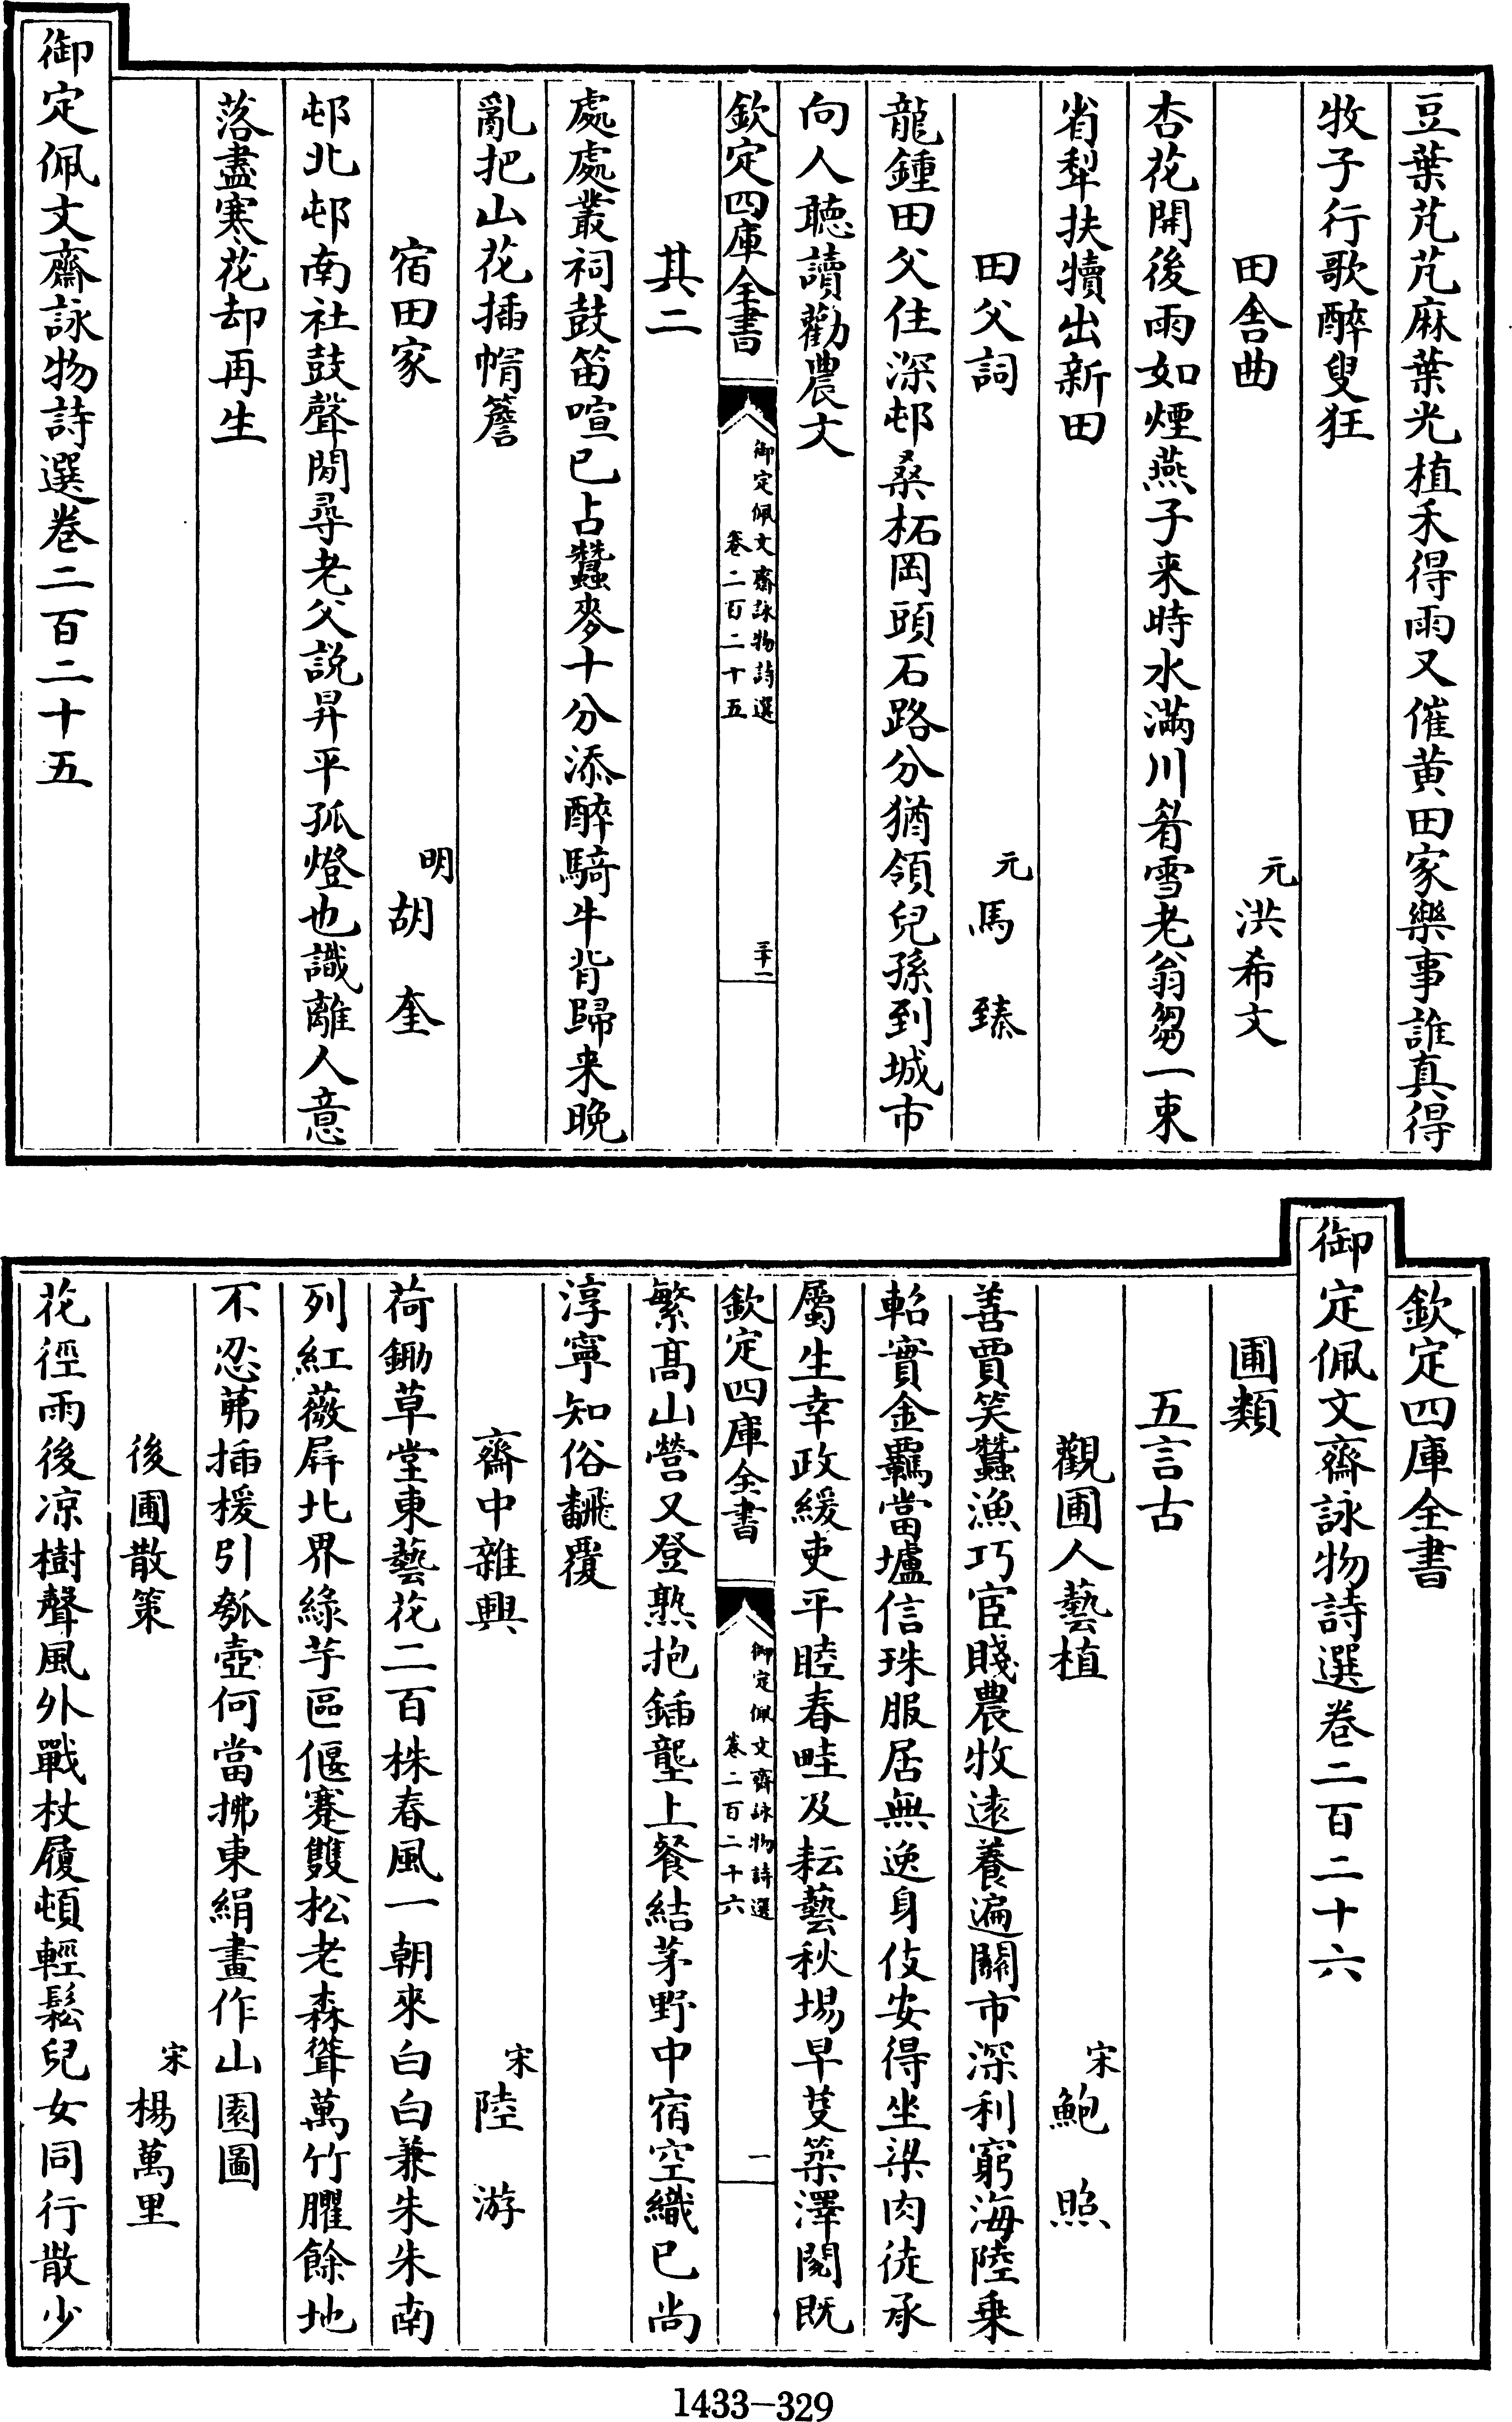 豆葉芃芃麻葉光植禾得雨又催黄田家樂事誰真得
牧子行歌醉叟狂
田舎曲
元洪希文
杏花開後雨如煙燕子来時水滿川肴雪老翁芻一束
省犁扶犢出新田
田父詞
元馬臻
龍鍾田父住深邨桑柘岡頭石路分猶領兒孫到城市
向人聽讀勸農文
欽定四庫全書
御定佩文齋詠物詩選
卷二百二十五
二十一
其二
處處叢祠鼓笛喧已占蠶麥十分添醉騎牛背歸来晚
亂把山花插帽簷
宿田家
明胡奎
邨北邨南社鼓聲閒尋老父説昇平孤燈也識離人意
落盡寒花却再生
御定佩文齋詠物詩選卷二百二十五
欽定四庫全書
御定佩文齋詠物詩選卷二百二十六
圃類
五言古
觀圃人藝植
宋鮑照
善賈笑蠶漁巧宦賤農牧逺養遍關市深利窮海陸乗
軺實金羈當壚信珠服居無逸身伎安得坐梁肉徒承
屬生幸政緩吏平睦春畦及耘藝秋場早芟築澤閱既
欽定四庫全書
御定佩文齋詠物詩選
卷二百二十六
一
繁髙山營又登熟抱鍤壟上餐結茅野中宿空織已尚
淳寧知俗飜覆
齋中雜興
宋陸游
荷鋤草堂東藝花二百株春風一朝來白白兼朱朱南
列紅薇屏北界綠芋區偃蹇雙松老森聳萬竹臞餘地
不忍茀插援引瓠壺何當拂東絹畫作山園圖
後圃散策
宋楊萬里
花徑雨後凉樹聲風外戰杖屨頓輕鬆兒女同行散少
1433-329